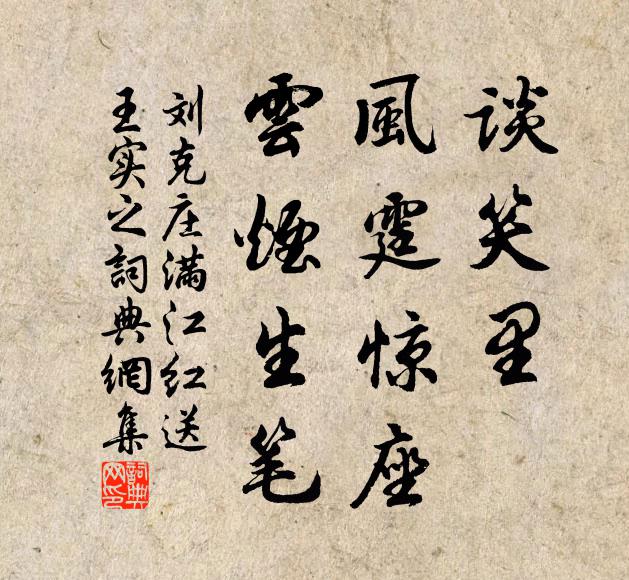 谈笑里
風霆惊座
雲煙生笔
刘克庄满江红送
王实之詞典網集
詞典
网印